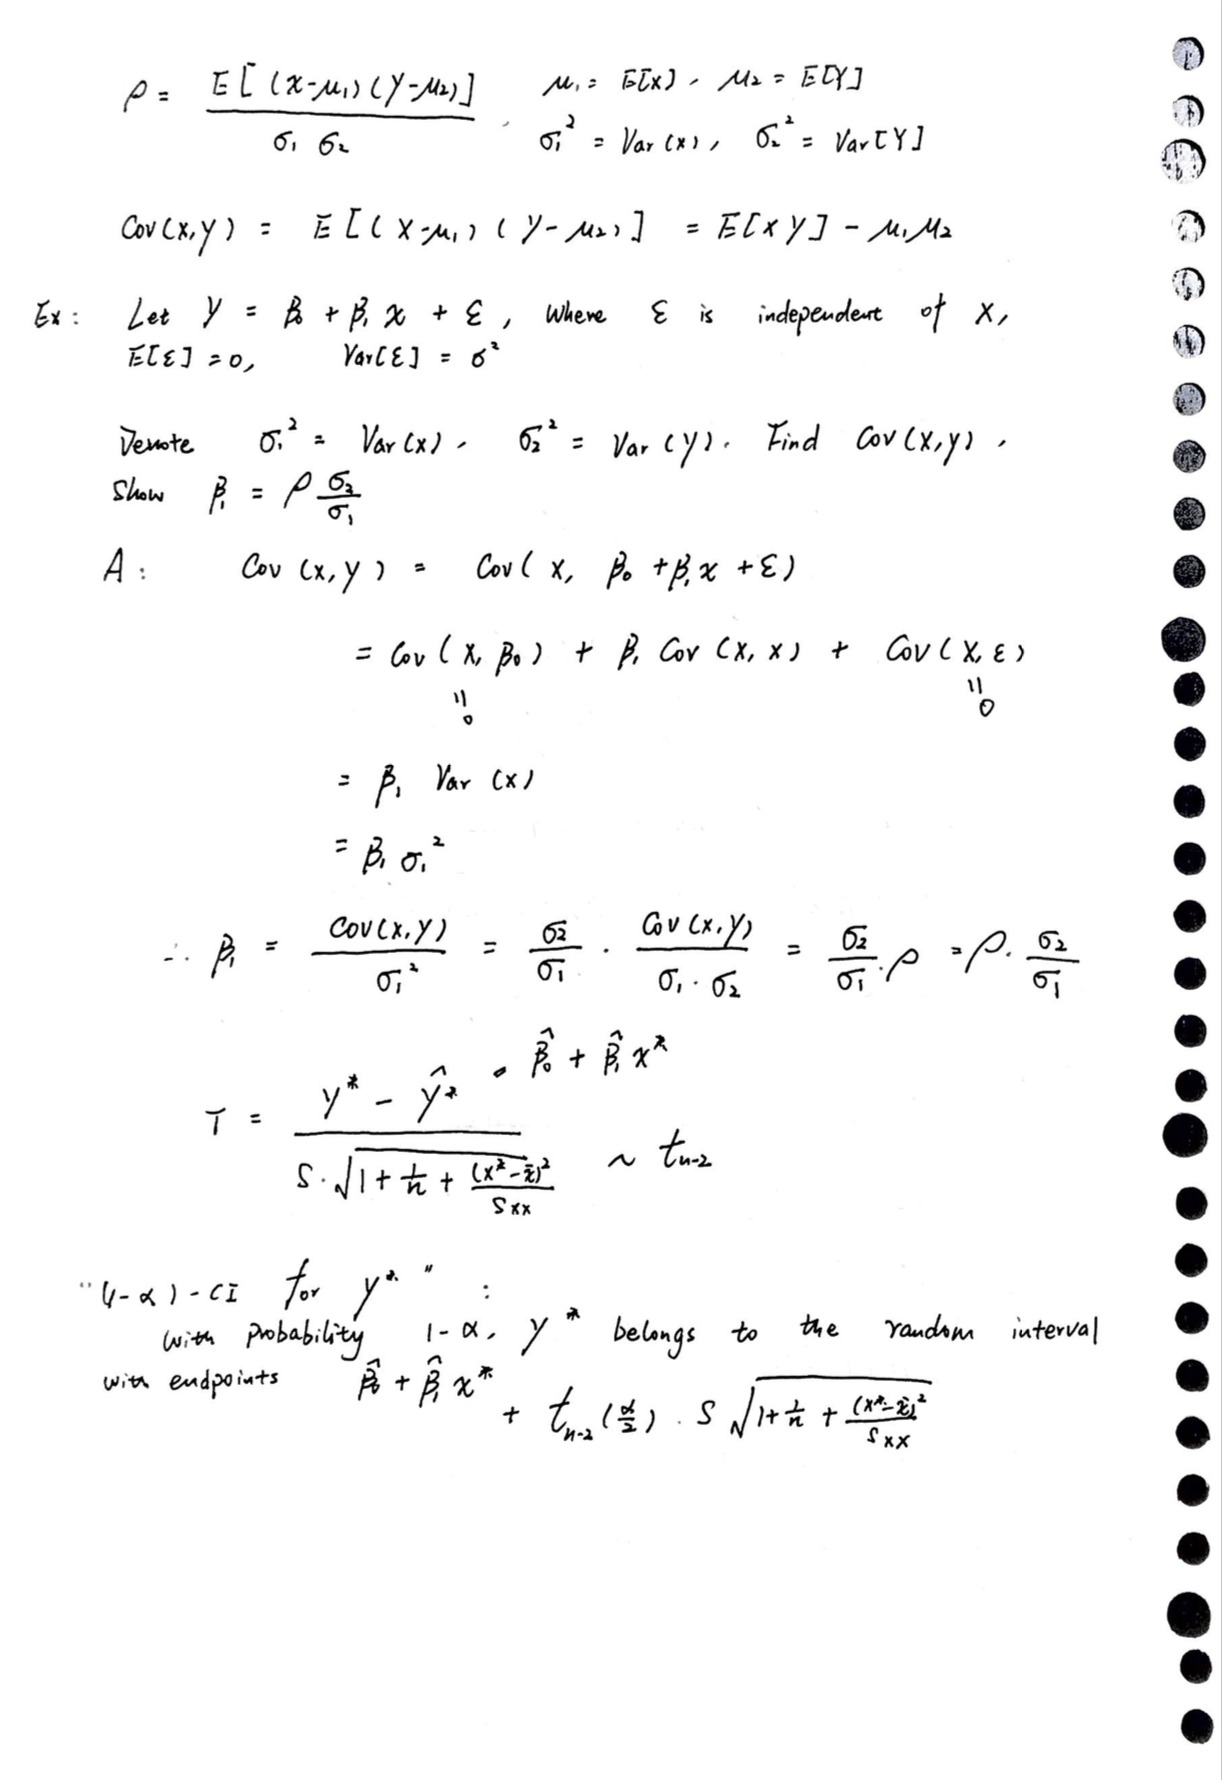 ρ = E[(X-μ₁)(Y-μ₂)] / σ₁ σ₂ , μ₁ = E[X], μ₂ = E[Y]
σ₁² = Var(X), σ₂² = Var[Y]
Cov(X,Y) = E[(X-μ₁)(Y-μ₂)] = E[XY] - μ₁μ₂
Ex: Let Y = β₀ + β₁x + ε, where ε is independent of X,
E[ε] = 0, Var[ε] = σ²
Denote σ₁² = Var(X), σ₂² = Var(Y). Find Cov(X,Y).
Show β₁ = ρ σ₂/σ₁
A: Cov(X,Y) = Cov(X, β₀ + β₁x + ε)
= Cov(X, β₀) + β₁ Cov(X,X) + Cov(X,ε)
|| ||
0 0
= β₁ Var(X)
= β₁ σ₁²
∴ β₁ = Cov(X,Y)/σ₁² = σ₂/σ₁ · Cov(X,Y)/(σ₁·σ₂) = σ₂/σ₁ · ρ = ρ · σ₂/σ₁
β̂₀ + β̂₁x*
T = (y* - ŷ*) / (S·√(1 + 1/n + (x*-x̄)²/Sxx)) ~ tₙ₋₂
"(1-α)-CI for y*" :
with probability 1-α, y* belongs to the random interval
with endpoints β̂₀ + β̂₁x*
+ tₙ₋₂(α/2) · S √(1 + 1/n + (x*-x̄)²/Sxx)